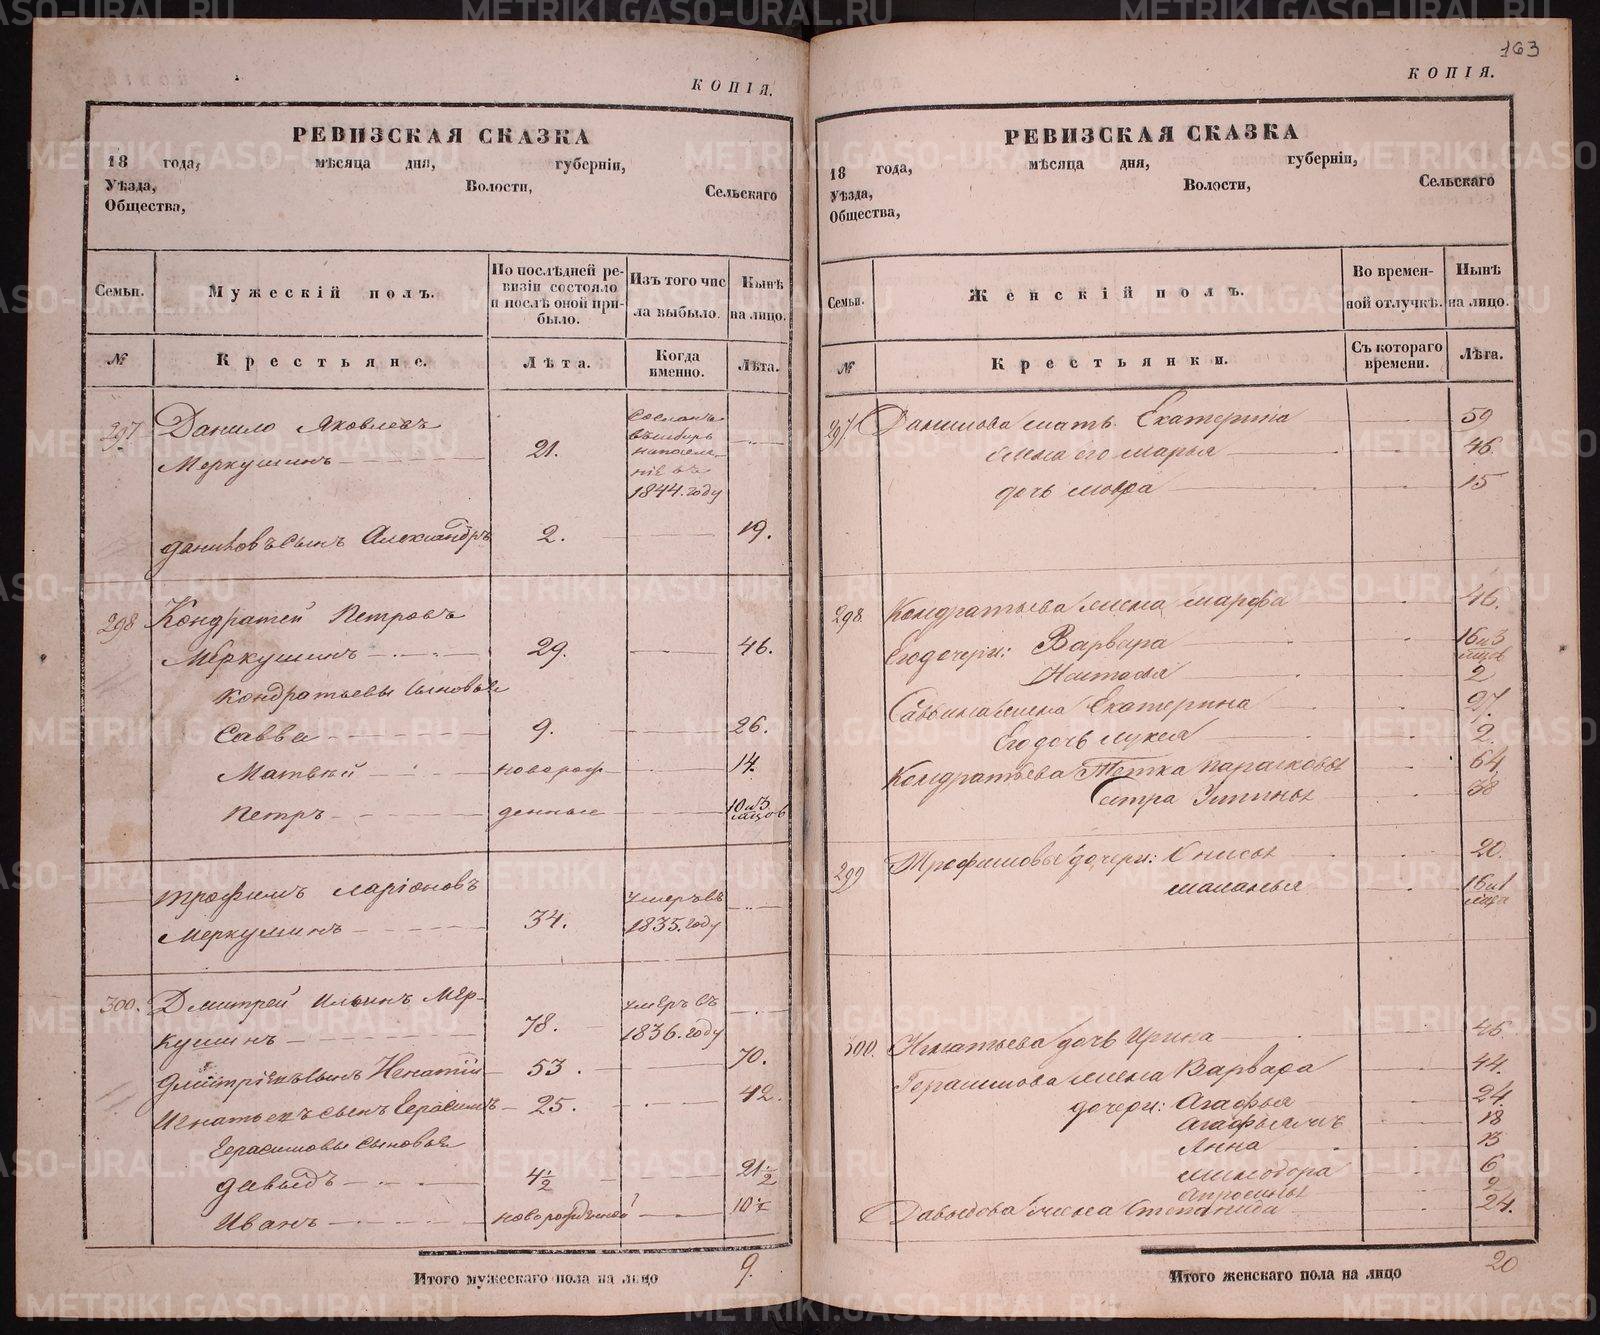 КОПІЯ.
РЕВИЗСКАЯ СКАЗКА
18 года, мѣсяца дня, губерніи,
Уѣзда, Волости, Сельскаго
Общества,
Семьи.
Мужескій полъ.
По послѣдней ре-
визіи состояло
и послѣ оной при-
было.
Изъ того чис
ла выбыло.
Нынѣ
на лицо.
№
Крестьяне.
Лѣта.
Когда
именно.
Лѣта.
297 Данило Яковлевъ
Меркушинъ 21.
Сосланъ
въ Сибирь
на поселе-
ніе въ
1844. году
Даниловъ сынъ Александръ 2. 19.
298 Кондратей Петровъ
Меркушинъ 29. 46.
Кондратьевы сыновья
Савва 9. 26.
Матвѣй новорож- 14.
Петръ денные 10 и 3
мѣсцовъ
Трофимъ Ларіоновъ умеръ въ
Меркушинъ 34. 1835. году
300. Дмитрей Ильинъ Мер- умеръ въ
кушинъ 78. 1836. году
Дмитріевъ сынъ Игнатій 53. 70.
Игнатьевъ сынъ Герасимъ 25. 42.
Герасимовы сыновья
Давыдъ 4½ 21½
Иванъ новорожденной 10
Итого мужескаго пола на лицо 9.
163
КОПІЯ.
РЕВИЗСКАЯ СКАЗКА
18 года, мѣсяца дня, губерніи,
Уѣзда, Волости, Сельскаго
Общества,
Семьи.
Женскій полъ.
Во времен-
ной отлучкѣ.
Нынѣ
на лицо.
№
Крестьянки.
Съ котораго
времени.
Лѣта.
297. Данилова мать Екатерина 59
жена его Марья 46.
дочь Мавра 15
298. Кондратьева жена Марфа 46.
Его дочери: Варвара 16 и 3
мѣсцов
Настасья 2
Саввина жена Екатерина 27.
Его дочь Лукея 2.
Кондратьева тетка Парасковья 64.
Сестра Устинья 38
299 Трофимовы дочери: Анисья 20.
Маланья 16 и 1
мѣсца
300. Игнатьева дочь Ирина 46.
Герасимова жена Варвара 44.
дочери: Агафья 24.
18
Анна 13
Минодора 6
Апросинья 2
Давыдова жена Степанида 24.
Итого женскаго пола на лицо 20
METRIKI.GASO-URAL.RU